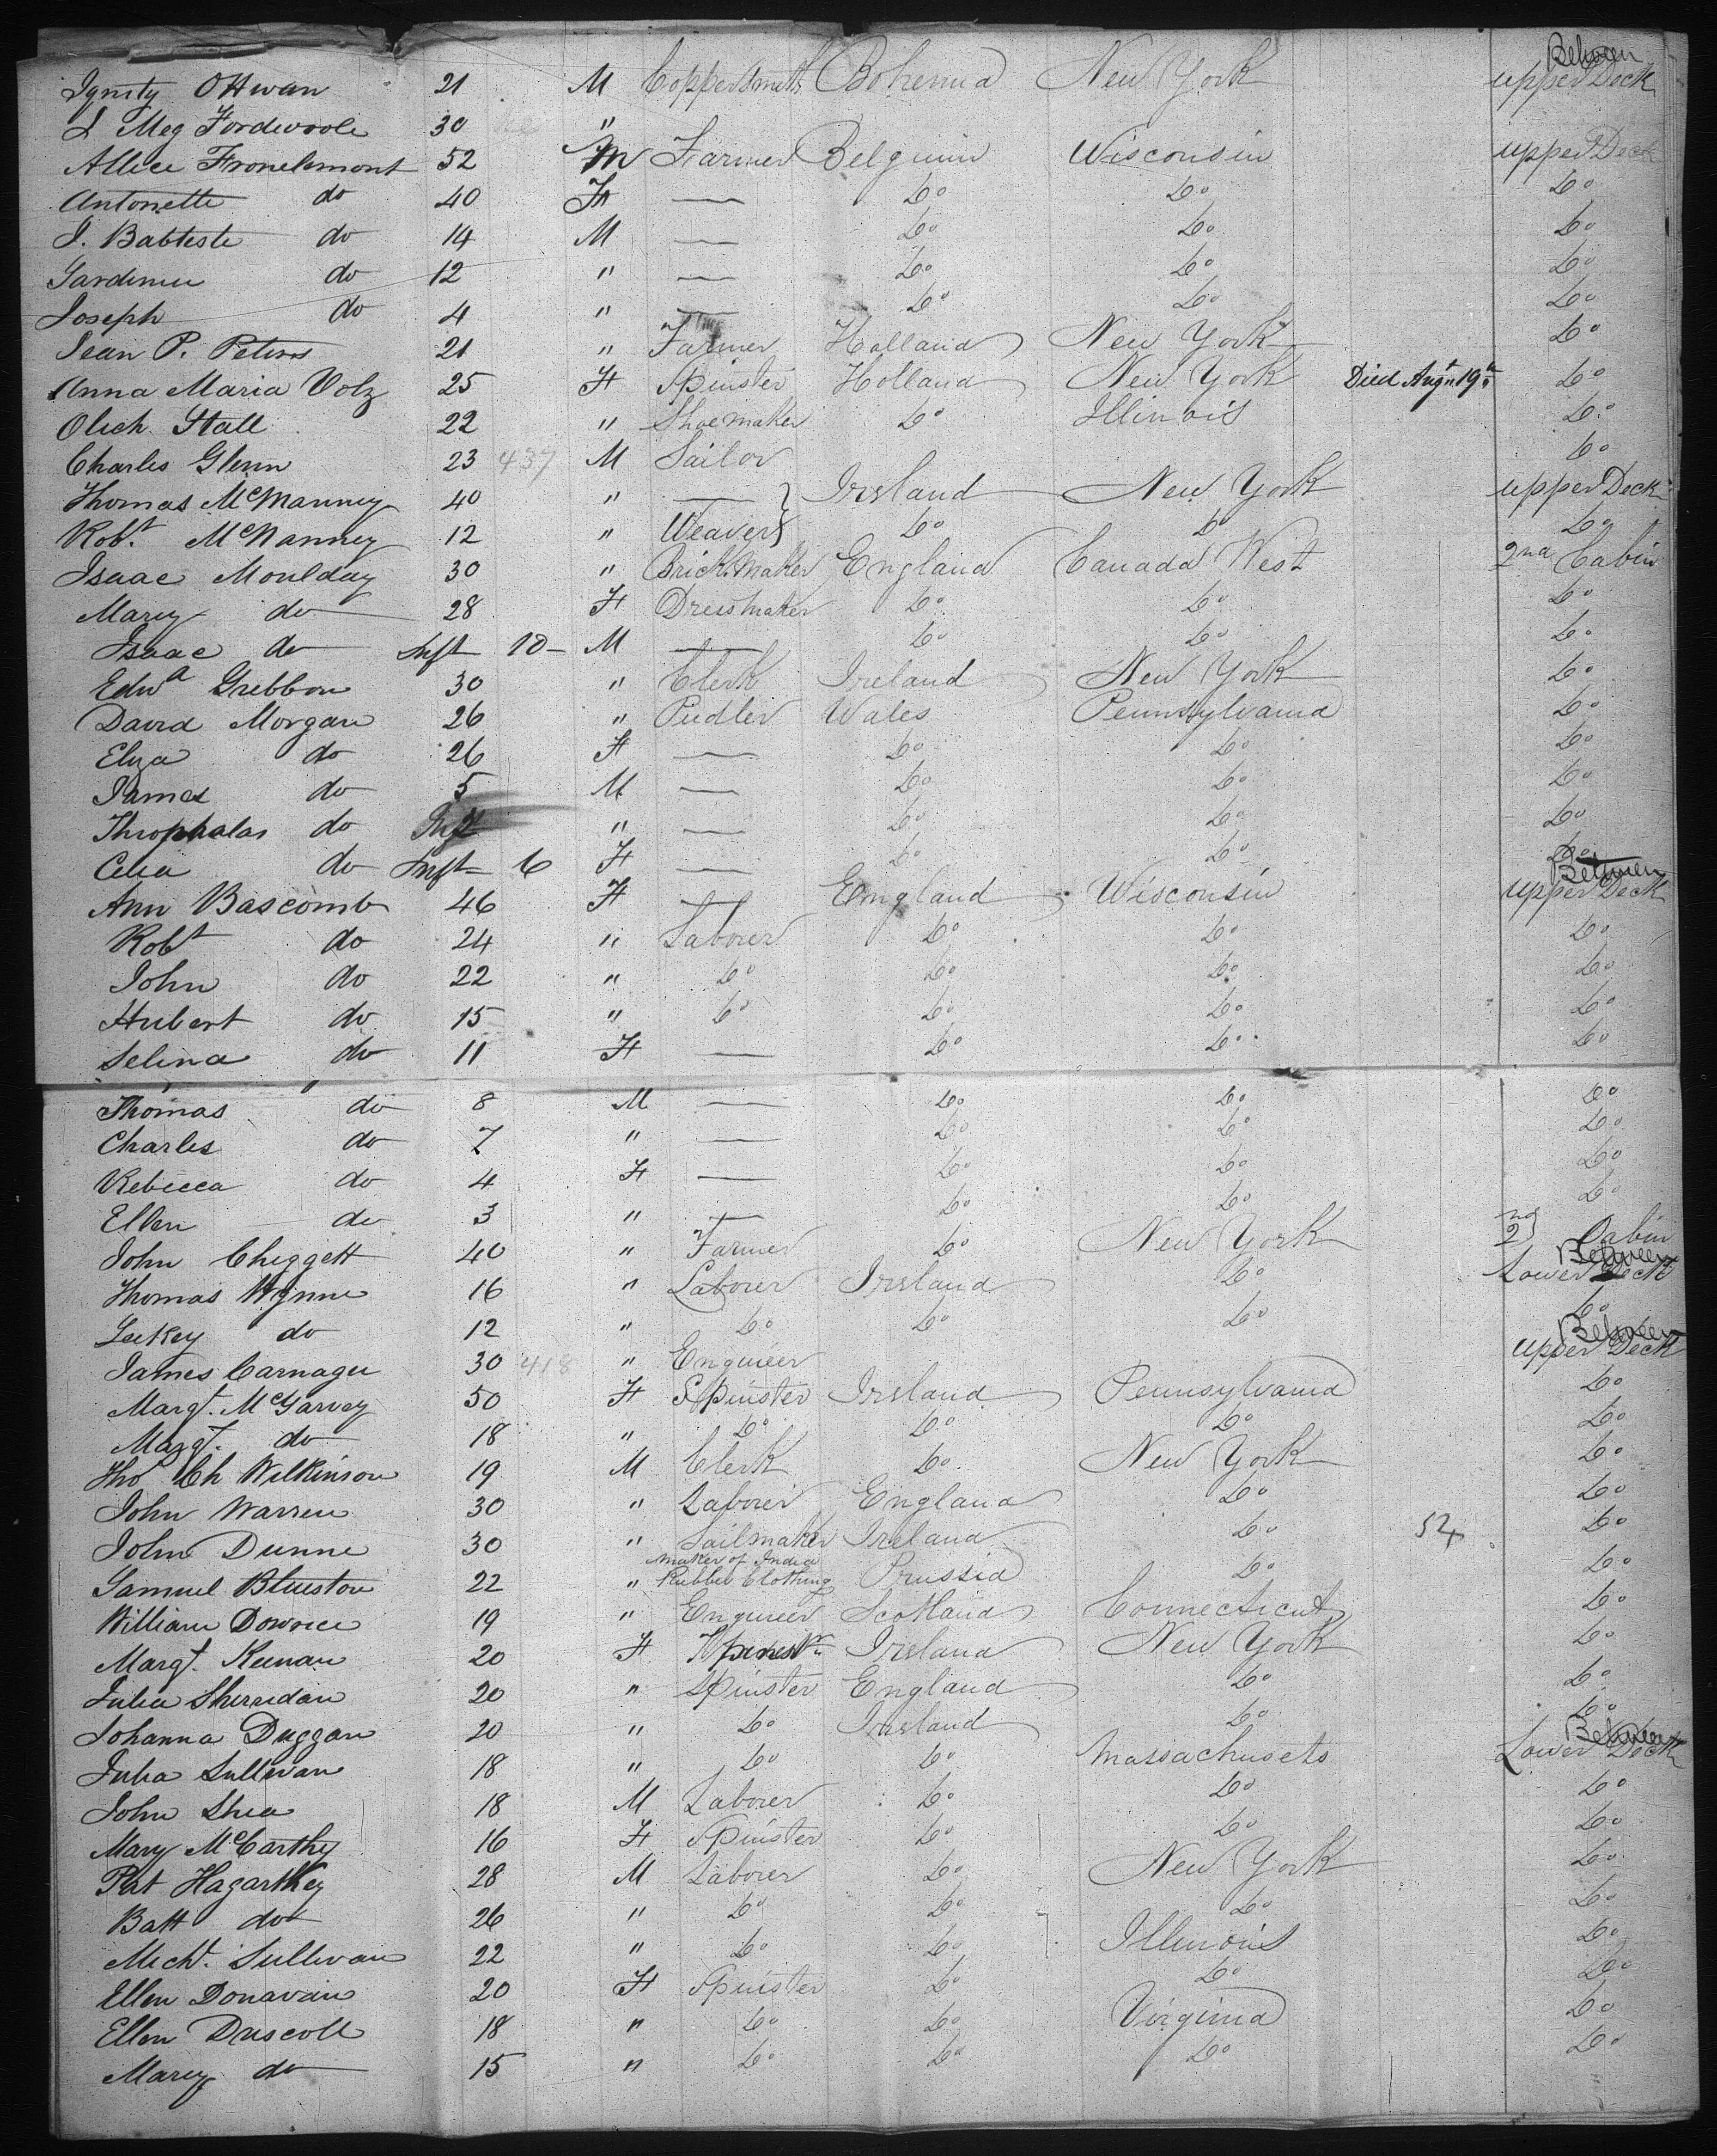 Ignsty Ottwan 21 M Coppersmith Bohemia New York Between upper Deck
L Meg Fordwoole 30 "
Allice Fronelemont 52 M Farmer Belguim Wisconsin upper Deck
Antonette do 40 F — Do Do Do
J. Babteste do 14 M — Do Do Do
do 12 " — Do Do Do
Joseph do 4 " — Do Do Do
Jean P. Peters 21 " Farmer Holland New York Do
Anna Maria Volz 25 F Spinster Holland New York Died Augt 19th Do
Olich Stall 22 " Shoemaker Do Illinois Do
Charles Glenn 23 437 M Sailor Do
Thomas McManney 40 " — } Ireland New York upper Deck
Robt. McNanney 12 " Weavers Do Do Do
Isaac Moulday 30 " Brick Maker England Canada West 2nd Cabin
Mary do 28 F Dressmaker Do Do Do
Isaac do Inft 10 — M — Do Do Do
Edwd Grebbon 30 " Clerk Ireland New York Do
David Morgan 26 " Pudler Wales Pennsylvania Do
Eliza do 26 F — Do Do Do
James do 5 M — Do Do Do
Throphalas do Inft " — Do Do Do
Celia do Inft 6 F — Do Do Do
Ann Bascomb 46 F — England Wisconsin Between upper Deck
Robt do 24 " Laborer Do Do Do
John do 22 " Do Do Do Do
Hubert do 15 " Do Do Do Do
Selina do 11 F — Do Do Do
Thomas do 8 M — Do Do Do
Charles do 7 " — Do Do Do
Rebecca do 4 F — Do Do Do
Ellen do 3 " — Do Do Do
John Cheggett 40 " Farmer Do New York 2nd Cabin
Thomas Wynne 16 " Laborer Ireland Do Between Lower Deck
Leekey do 12 " Do Do Do Do
James Carnager 30 418 " Engineer Between upper Deck
Margt. McGarvey 50 F Spinster Ireland Pennsylvania Do
Margt. do 18 " Do Do Do Do
Tho Ch Wilkinson 19 M Clerk Do New York Do
John Warren 30 " Laborer England Do Do
John Dunne 30 " Sailmaker Ireland Do 54 Do
Samuel Bluestou 22 " Maker of India Rubber Clothing Prussia Do Do
William Downce 19 " Engineer Scotland Connecticut Do
Margt. Keenan 20 F Ireland New York Do
Julia Sherridan 20 " Spinster England Do Do
Johanna Duggan 20 " Do Ireland Do Do
Julia Sullivan 18 " Do Do Massachusets Between Lower Deck
John Shea 18 M Laborer Do Do Do
Mary McCarthy 16 F Spinster Do Do Do
Pat Hagarthey 28 M Laborer Do New York Do
Batt do 26 " Do Do Do Do
Michl. Sullivan 22 " Do Do Illinois Do
Ellen Donavain 20 F Spinster Do Do Do
Ellen Driscoll 18 " Do Do Virginia Do
Mary do 15 " Do Do Do Do